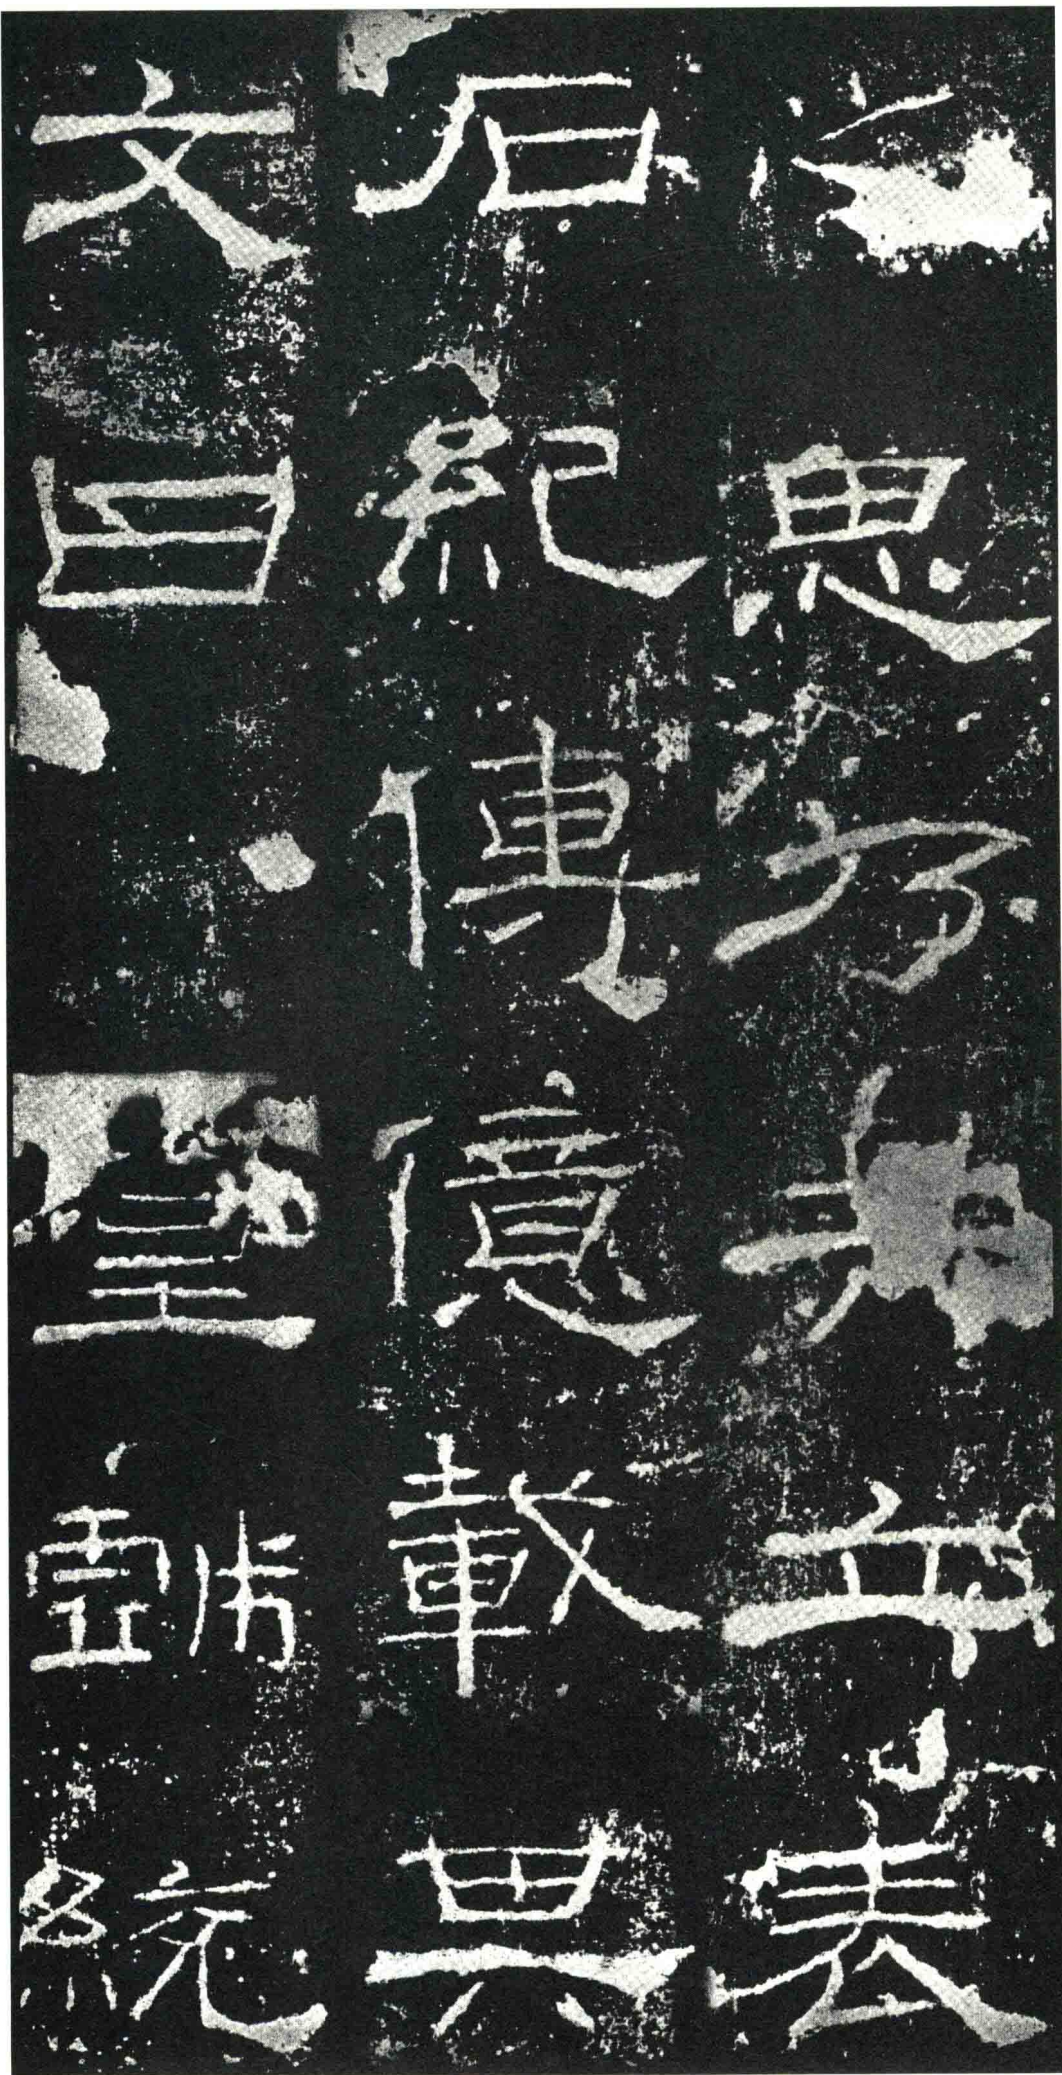 之思乃共立表
石紀傳億載其
文曰
皇戲統